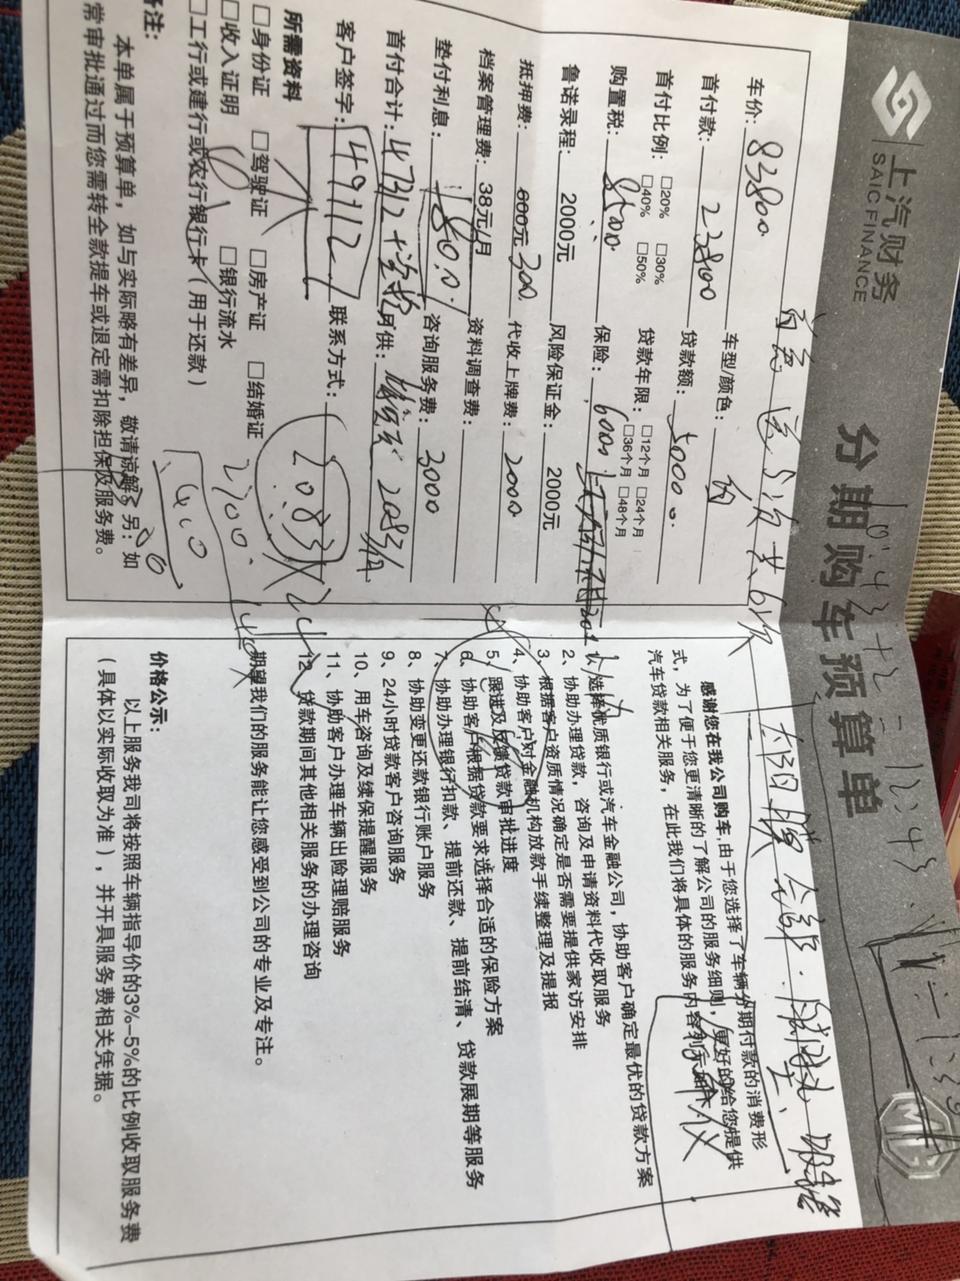 上汽财务
SAIC FINANCE
分期购车预算单
车价：83800 车型/颜色：
首付款：23800 贷款额：50000.
首付比例：□20% □30% □40% □50% 贷款年限：□12个月 □24个月 □36个月 □48个月
购置税：8500 保险：6000
鲁诺录程：2000元 风险保证金：2000元
抵押费：600元 300 代收上牌费：2000
档案管理费：38元/月 资料调查费：
垫付利息：1800. 咨询服务费：3000
首付合计：47312+ 月供：2083/月
客户签字：49112 联系方式：
2083×24
所需资料
□身份证 □驾驶证 □房产证 □结婚证
□收入证明 □银行流水
□工行或建行或农行银行卡（用于还款）
2700
备注：
本单属于预算单，如与实际略有差异，敬请谅解。另：如
常审批通过而您需转全款提车或退定需扣除担保及服务费。
感谢您在我公司购车，由于您选择了车辆分期付款的消费形
式，为了便于您更清晰的了解公司的服务细则，更好的给您提供
汽车贷款相关服务，在此我们将具体的服务内容列示如下
1、选择优质银行或汽车金融公司，协助客户确定最优的贷款方案
2、协助办理贷款，咨询及申请资料代收取服务
3、根据客户资质情况确定是否需要提供家访安排
4、协助客户对金融机构放款手续整理及提报
5、跟进及反馈贷款审批进度
6、协助客户根据贷款要求选择合适的保险方案
7、协助办理银行扣款、提前还款、提前结清、贷款展期等服务
8、协助变更还款银行账户服务
9、24小时贷款客户咨询服务
10、用车咨询及续保提醒服务
11、协助客户办理车辆出险理赔服务
12、贷款期间其他相关服务的办理咨询
期望我们的服务能让您感受到公司的专业及专注。
价格公示：
以上服务我司将按照车辆指导价的3%-5%的比例收取服务费
（具体以实际收取为准），并开具服务费相关凭据。